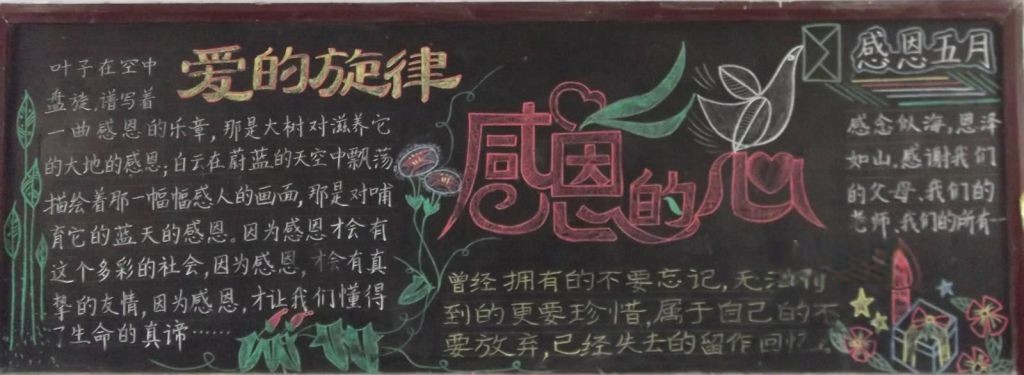 爱的旋律
叶子在空中
盘旋,谱写着
一曲感恩的乐章,那是大树对滋养它
的大地的感恩;白云在蔚蓝的天空中飘荡
描绘着那一幅幅感人的画面,那是对哺
育它的蓝天的感恩。因为感恩才会有
这个多彩的社会,因为感恩,才会有真
挚的友情,因为感恩,才让我们懂得
了生命的真谛……
感恩的心
曾经拥有的不要忘记,无法
到的更要珍惜,属于自己的不
要放弃,已经失去的留作回忆
感恩五月
感念似海,恩泽
如山,感谢我们
的父母、我们的
老师、我们的所有